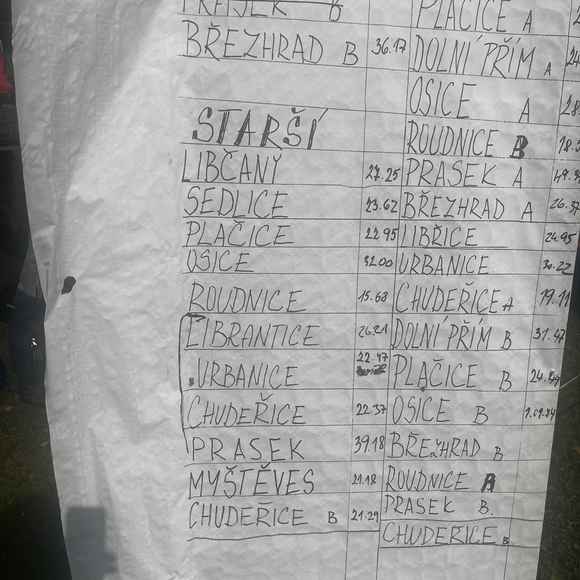 PRAJEK B
BŘEZHRAD B 36.17
STARŠÍ
LIBČANY 27.25
SEDLICE 23.62
PLAČICE 22.95
OSICE 32.00
ROUDNICE 15.68
LIBRANTICE 26.21
URBANICE 22.47
CHUDEŘICE 22.37
PRASEK 39.18
MYŠTĚVES 21.18
CHUDEŘICE B 21.29
PLAČICE A
DOLNÍ PŘÍM A 24
OSICE A
ROUDNICE B 18.
PRASEK A 49.
BŘEZHRAD A 26.37
LIBŘICE 24.95
URBANICE 30.22
CHUDEŘICE A 19.11
DOLNÍ PŘÍM B 31.47
PLAČICE B 24.
OSICE B
BŘEZHRAD B
ROUDNICE A
PRASEK B.
CHUDEŘICE B